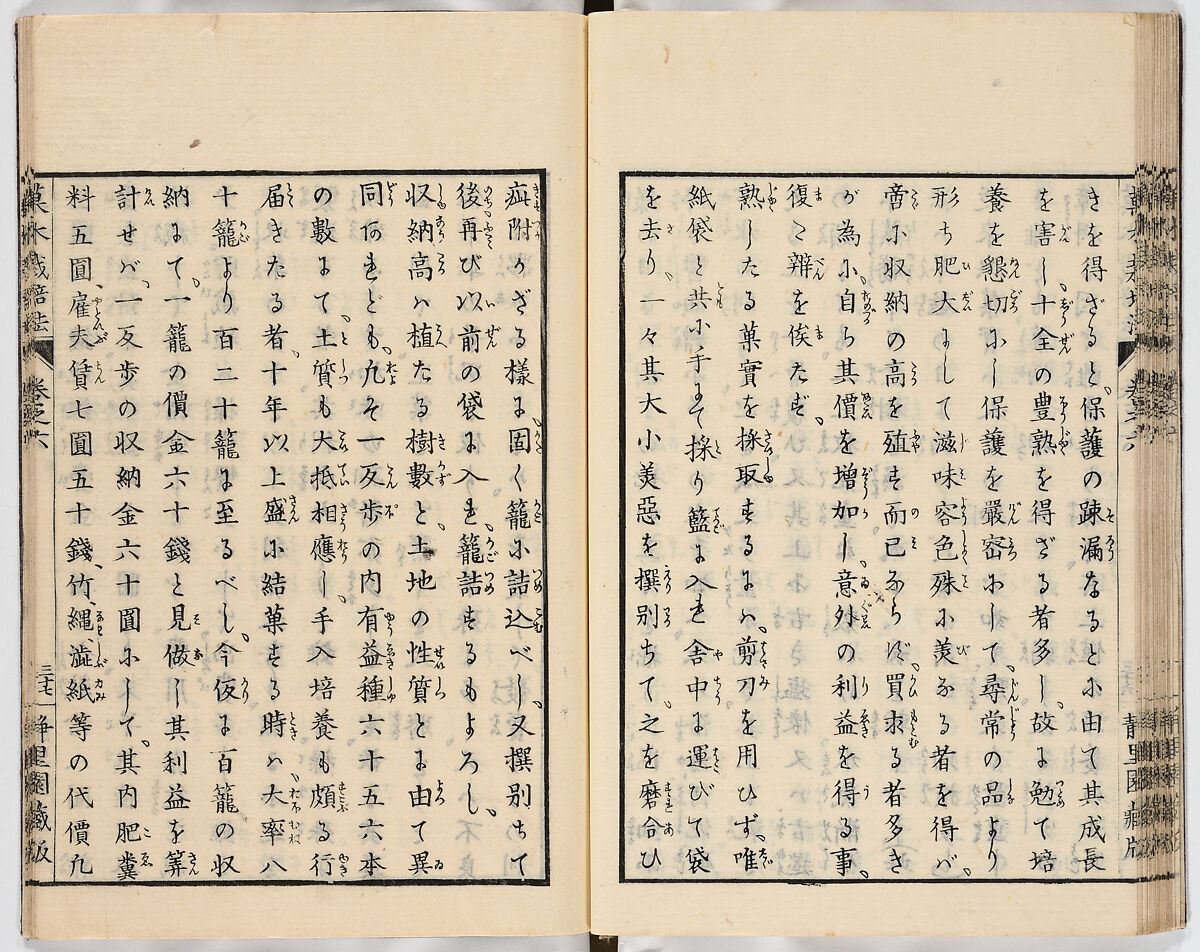 きを得ざると、保護の疎漏なるとに由て其成長
を害し、十全の豊熟を得ざる者多し、故に勉て培
養を懇切にし保護を嚴密にして、尋常の品より
形ち肥大にして滋味容色殊に美なる者を得バ、
啻に収納の高を殖す而已ならず、買求る者多き
が為に、自ら其價を増加し、意外の利益を得る事、
復た辨を俟たず、
熟したる菓實を採取するにハ、剪刀を用ひず、唯
紙袋と共に手にて採り籃に入れ舎中に運びて袋
を去り、一々其大小美惡を撰別ちて之を磨合ひ
疵附かざる様に、固く籠に詰込べし、又撰別ちて
後再び以前の袋に入れ、籠詰するもよろし、
収納高ハ植たる樹數と、土地の性質とに由て異
同あれども、凢そ一反歩の内有益種六十五六本
の數にて、土質も大抵相應し、手入培養も頗る行
届きたる者、十年以上盛に結菓する時ハ、大率八
十籠より百二十籠に至るべし、今仮に百籠の収
納にて、一籠の價金六十錢と見做し其利益を筭
計せバ、一反歩の収納金六十圓にして、其内肥糞
料五圓、雇夫賃七圓五十錢、竹、縄、澁紙等の代價凢
菓木栽培法 卷之六 三十七 静里園藏版